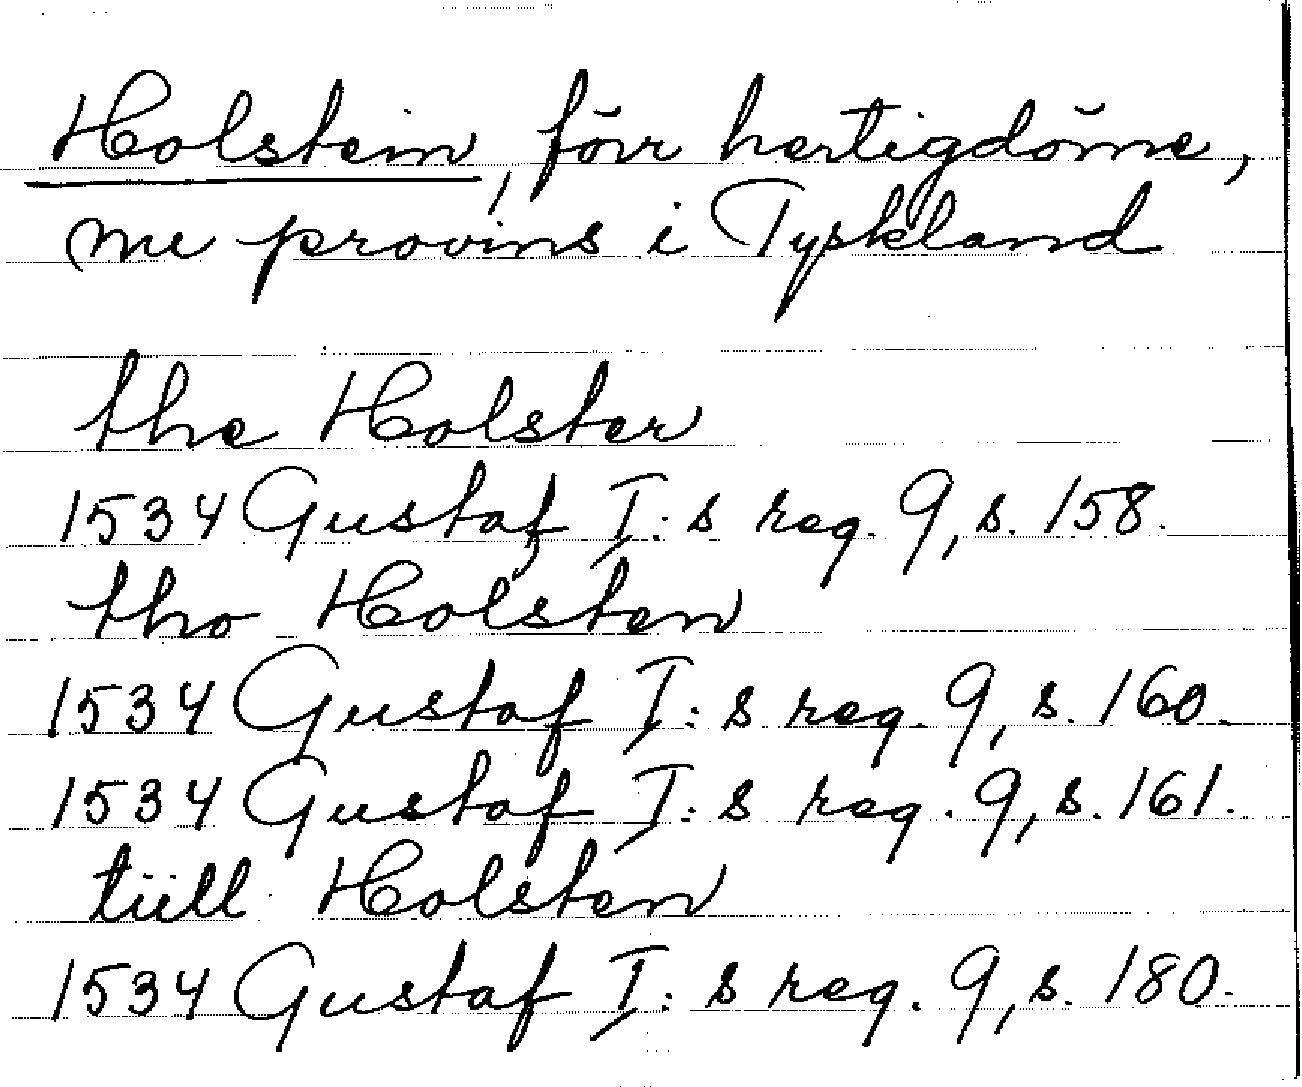 Holstein, förr hertigdöme,
nu provins i Tyskland
the Holster
1534 Gustaf I:s reg. 9, s. 158.
tho Holsten
1534 Gustaf I:s reg. 9, s. 160.
1534 Gustaf I:s reg. 9, s. 161.
tiill Holsten
1534 Gustaf I:s reg. 9, s. 180.